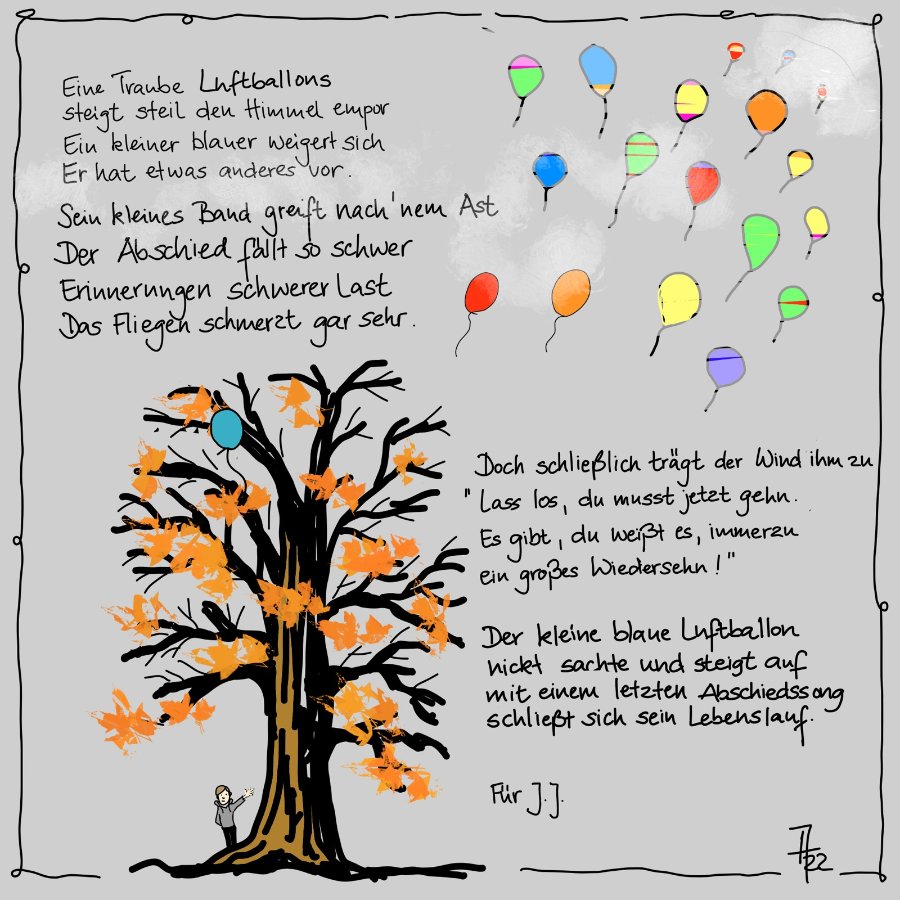 Eine Traube Luftballons
steigt steil den Himmel empor
Ein kleiner blauer weigert sich
Er hat etwas anderes vor.
Sein kleines Band greift nach 'nem Ast
Der Abschied fällt so schwer
Erinnerungen schwerer Last
Das Fliegen schmerzt gar sehr.
Doch schließlich trägt der Wind ihm zu
"Lass los, du musst jetzt gehn.
Es gibt, du weißt es, immerzu
ein großes Wiedersehn!"
Der kleine blaue Luftballon
nickt sachte und steigt auf
mit einem letzten Abschiedssong
schließt sich sein Lebenslauf.
Für J.J.